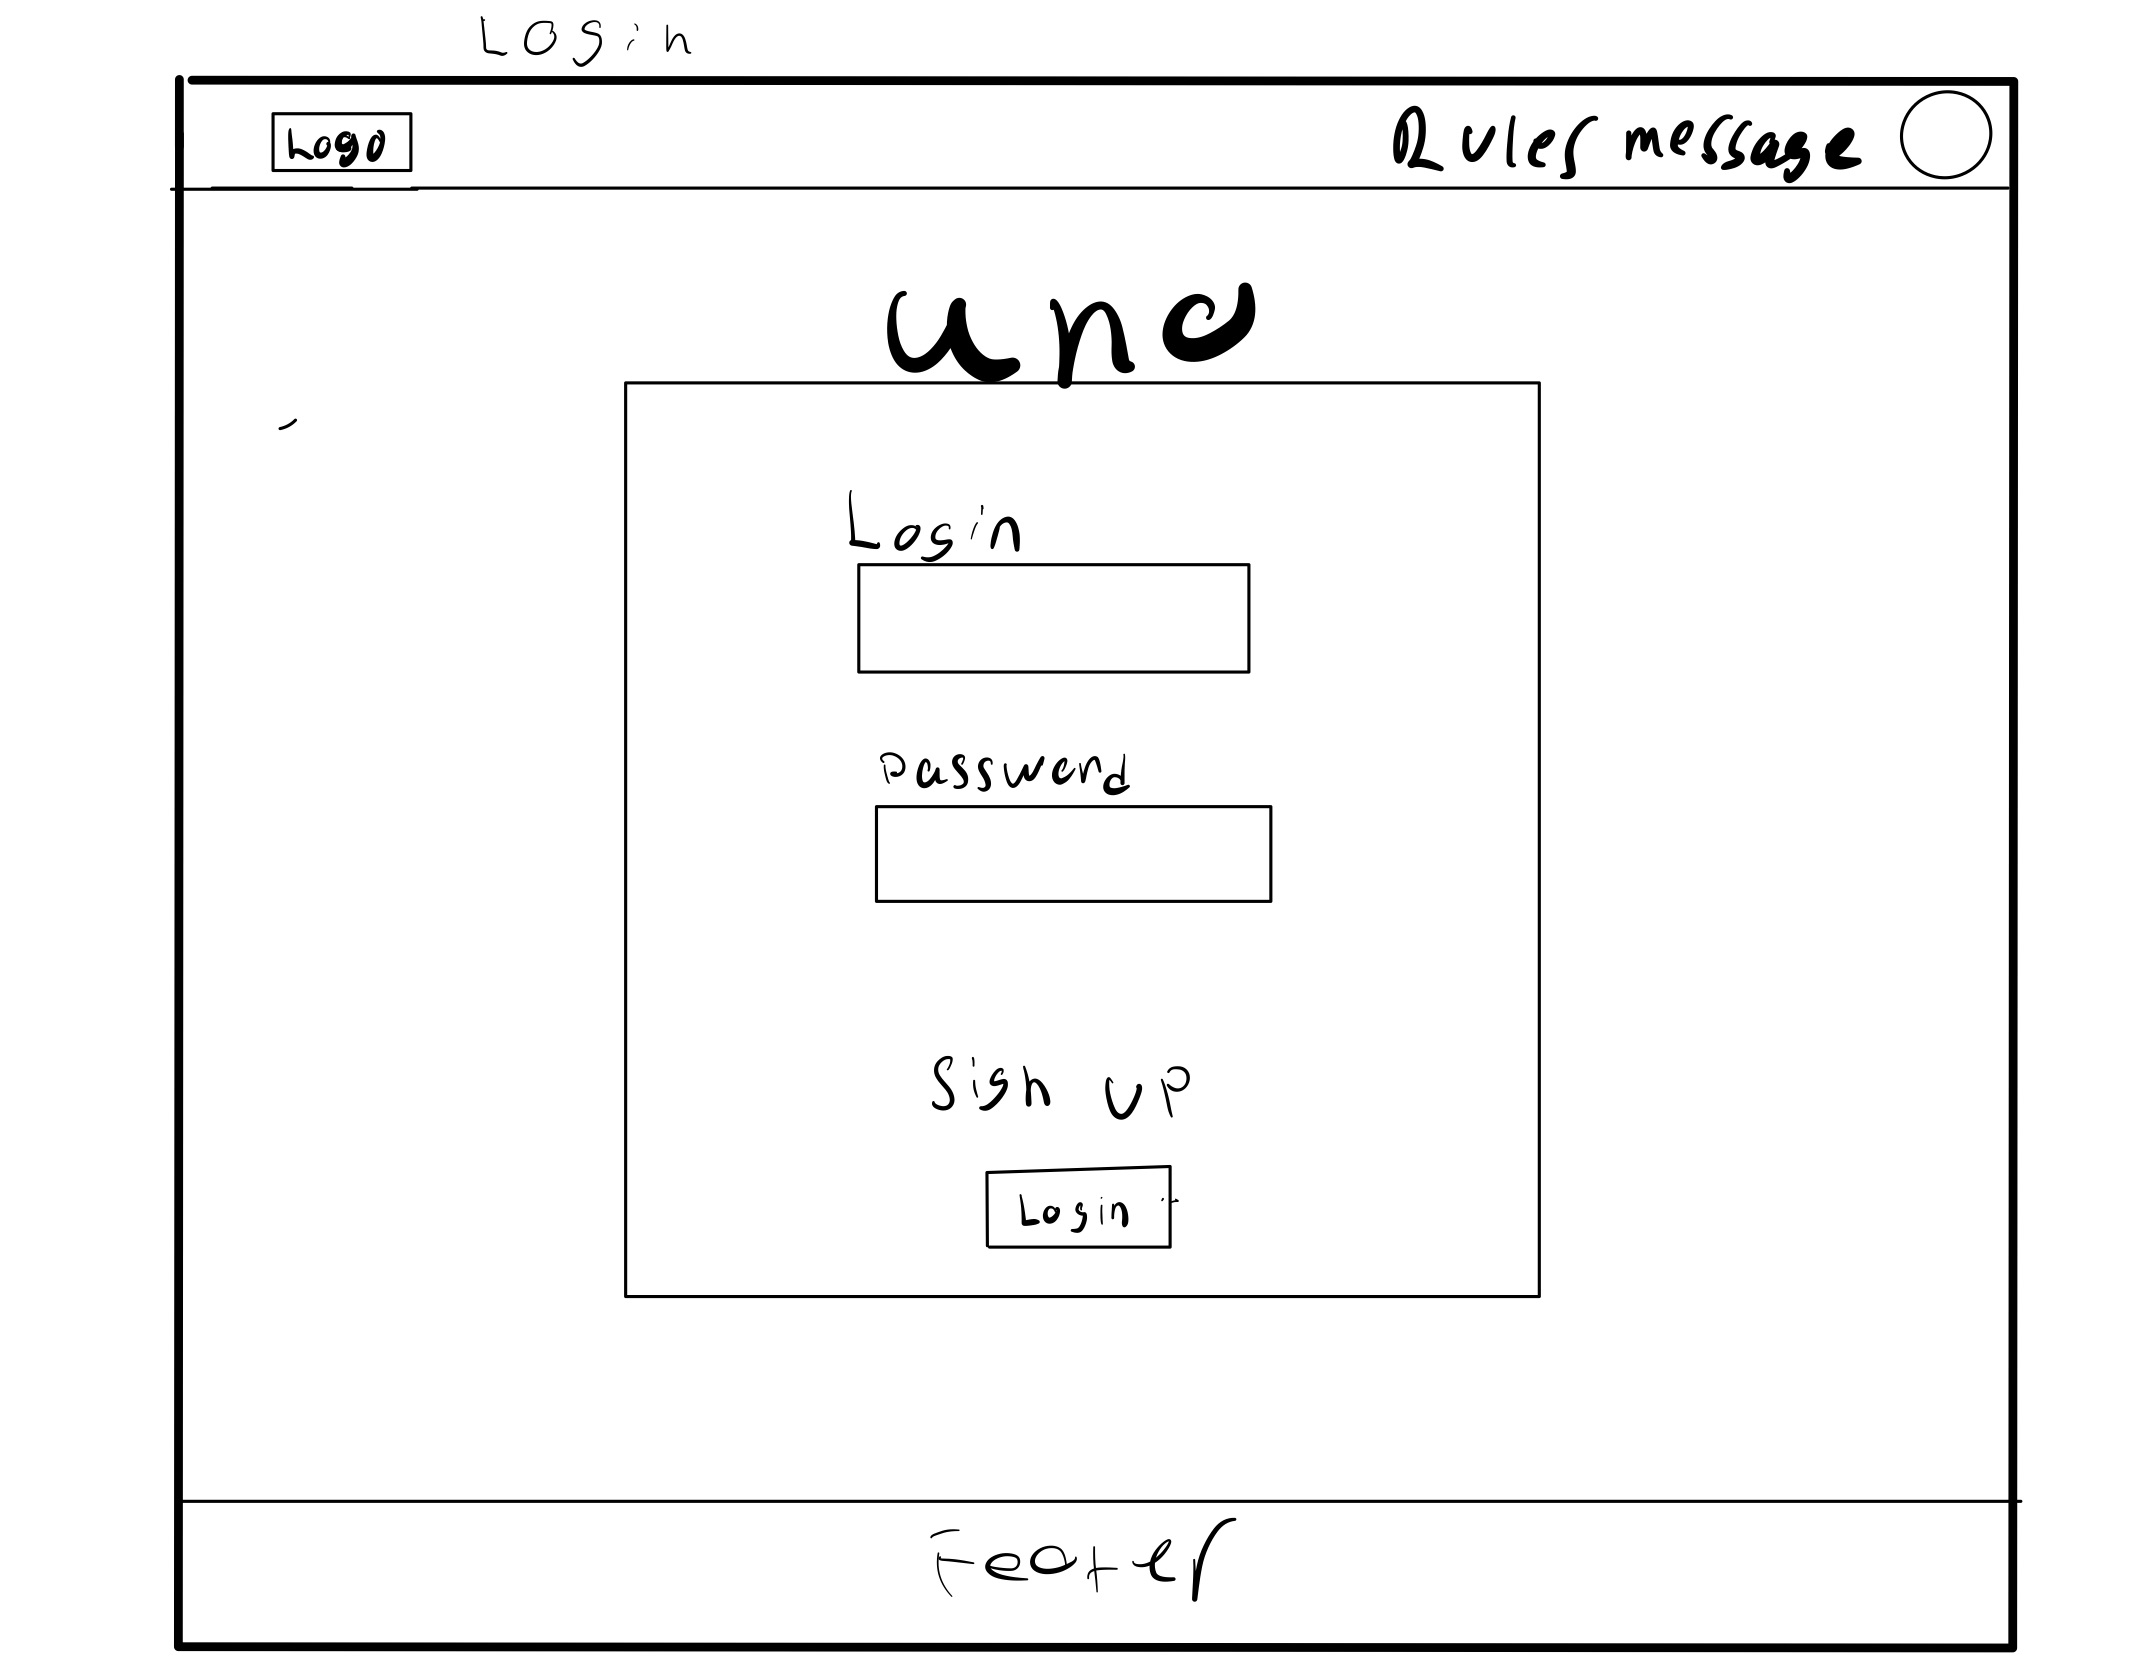 Login
Logo
Rules message
uno
Login
Password
Sign up
Login
Footer